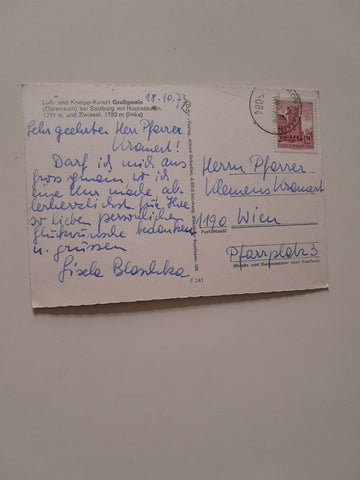 Luft- und Kneipp-Kurort Großgmain
(Österreich) bei Salzburg mit Hochstaufen,
1771 m, und Zwiesel, 1782 m (links)
18.10.73
Sehr geehrter Herr Pfarrer
Kramert!
Darf ich mich aus
Grossgmain wo ich
eine Kur mache aller
herzlichst für Ihre
so lieben persönlichen
Glückwünsche bedanken
u. grüssen
Gisela Blaschka
Herrn Pfarrer
Klemens Kramert
1190 Wien
Postleitzahl
Pfarrplatz 3
(Straße und Hausnummer oder Postfach)
F 241
5084